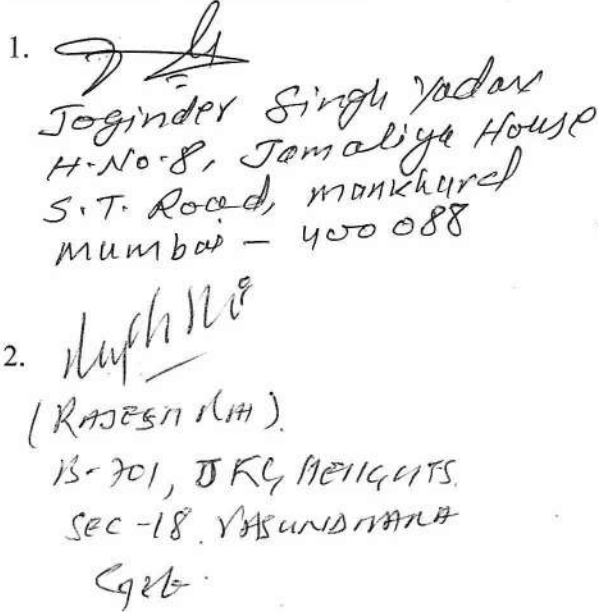 1.
Joginder Singh Yadav
H.No.8, Jamaliya House
S.T. Road, mankhurd
mumbai - 400 088
2.
(RAJESH RAI).
B-701, JKG HEIGHTS.
SEC-18. VASUNDHARA